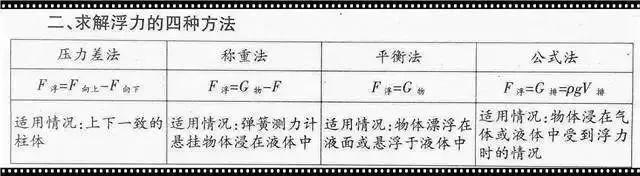 二、求解浮力的四种方法
压力差法 称重法 平衡法 公式法
F浮=F向上-F向下 F浮=G物-F F浮=G物 F浮=G排=ρgV排
适用情况:上下一致的柱体 适用情况:弹簧测力计悬挂物体浸在液体中 适用情况:物体漂浮在液面或悬浮于液体中 适用情况:物体浸在气体或液体中受到浮力时的情况